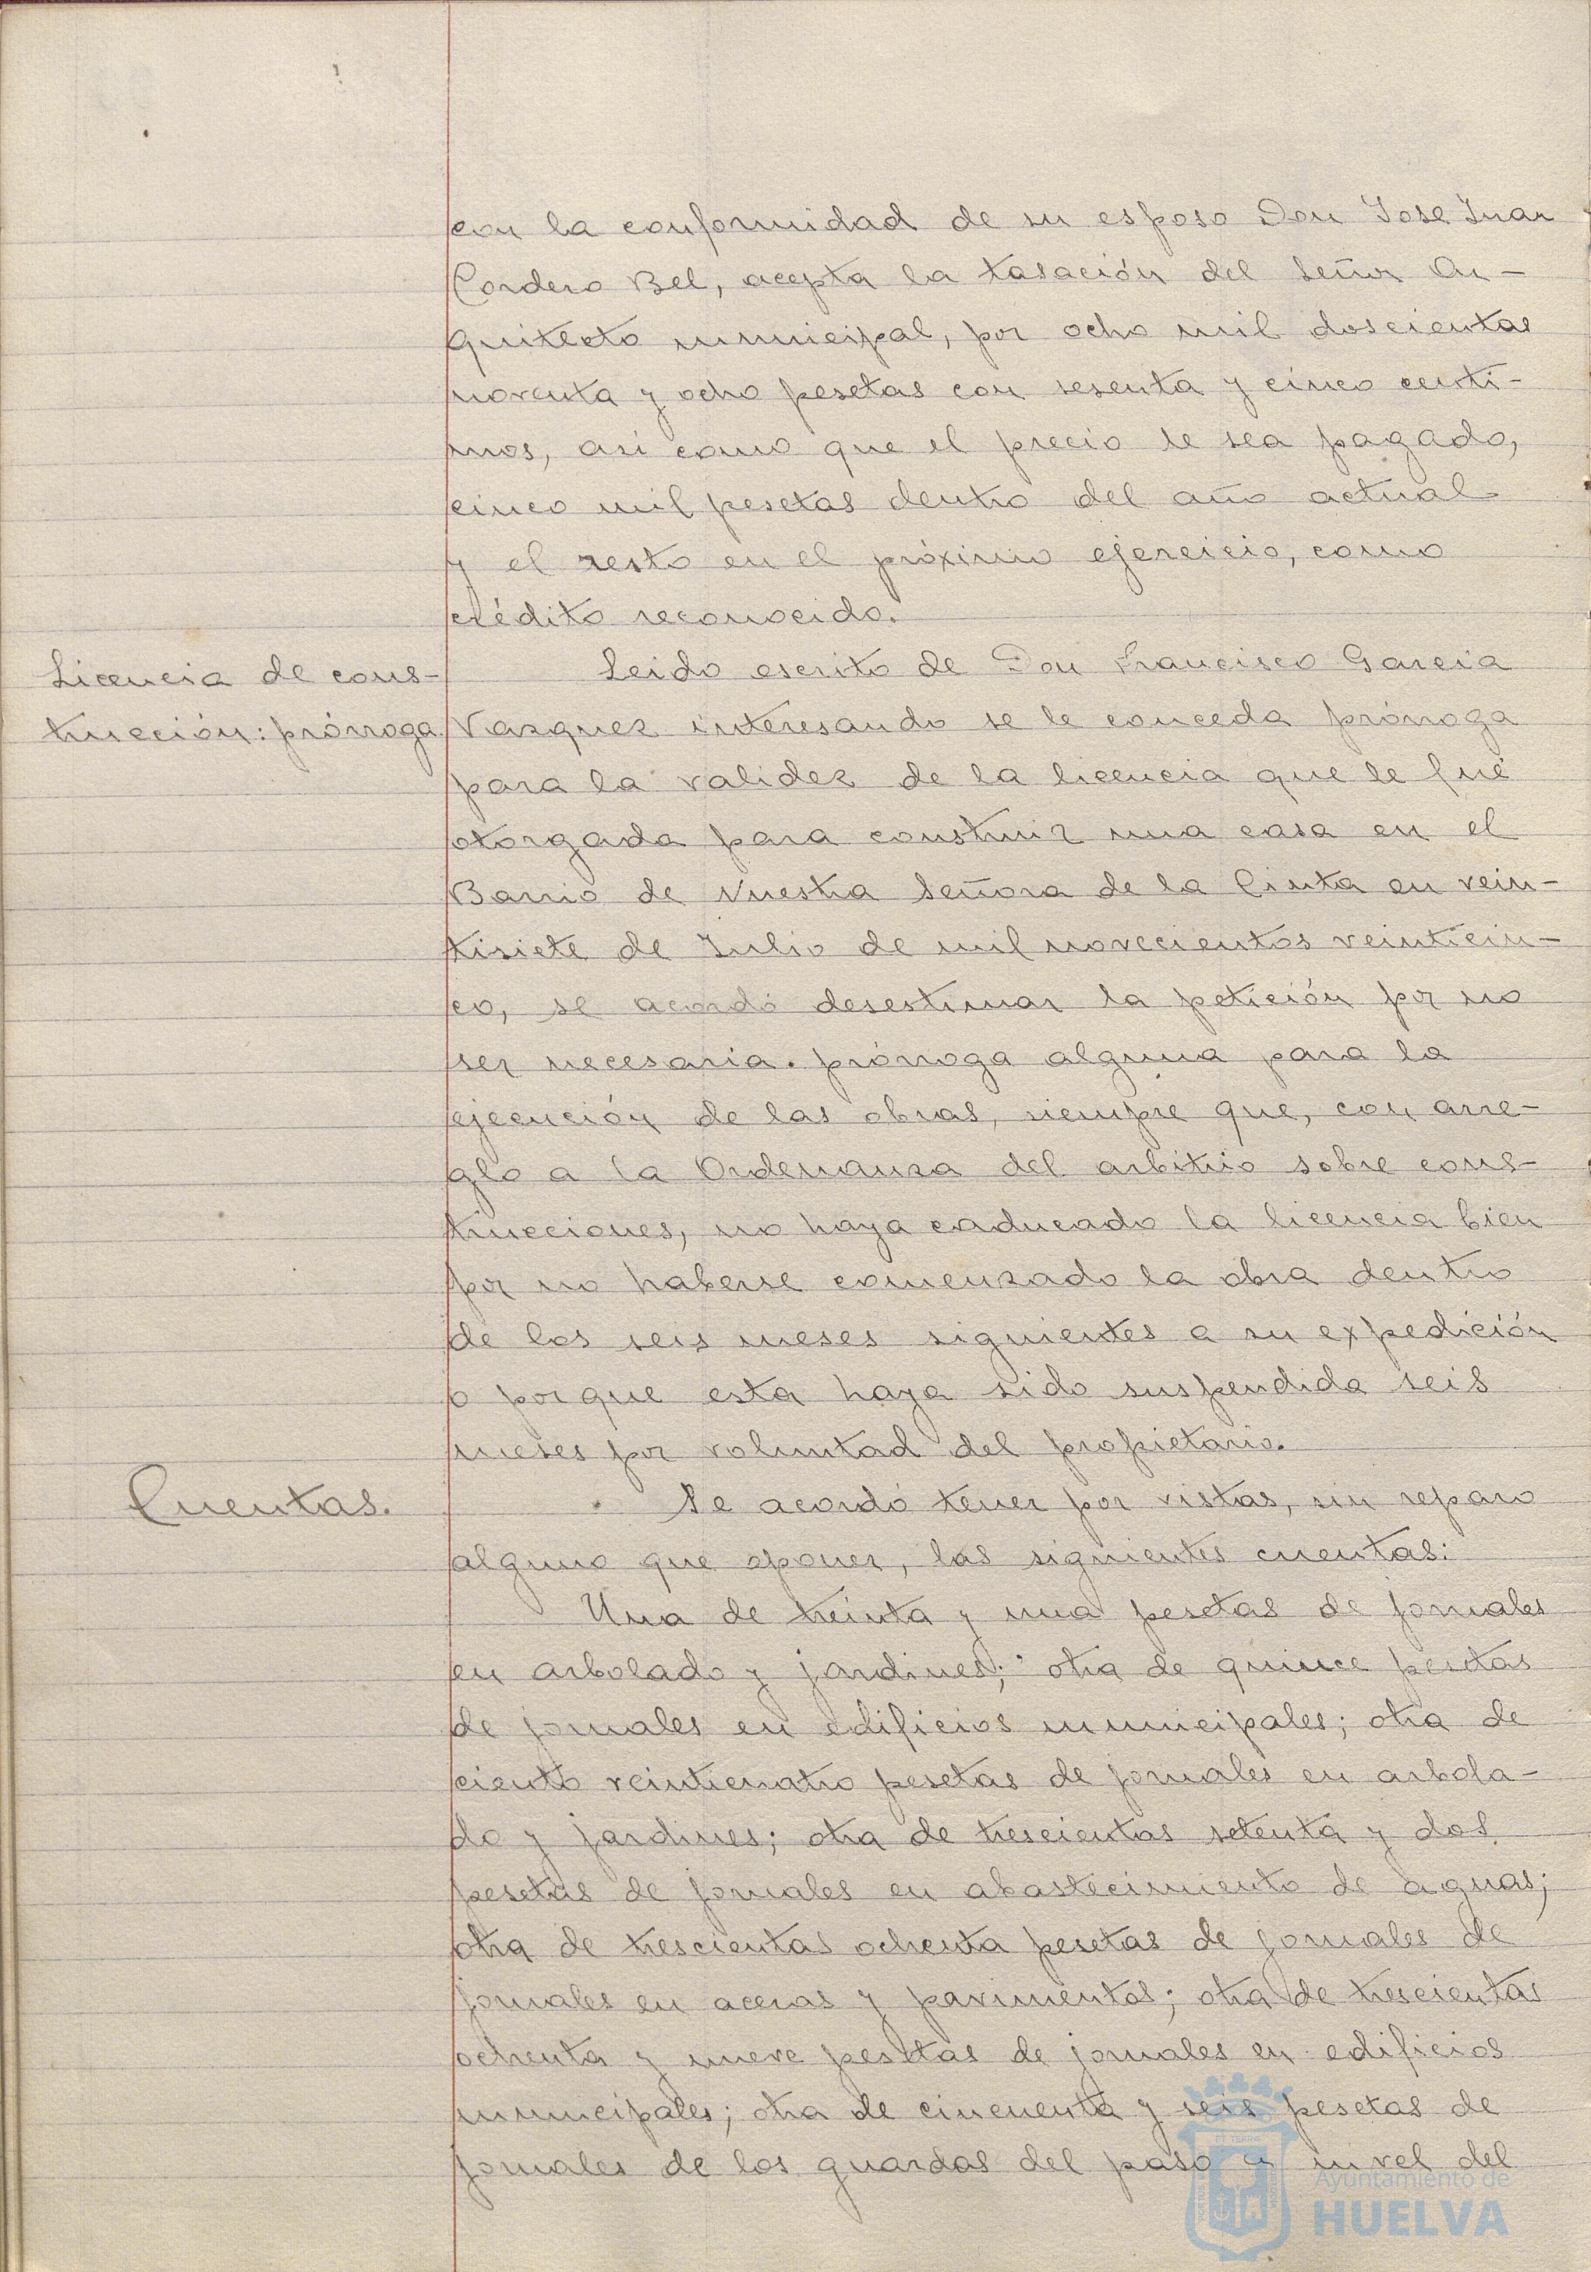 con la conformidad de su esposo Don Jose Juan
Cordero Bel, acepta la tasación del Señor Ar-
quitecto municipal, por ocho mil doscientas
noventa y ocho pesetas con sesenta y cinco centi-
mos, asi como que el precio le sea pagado,
cinco mil pesetas dentro del año actual
y el resto en el próximo ejercicio, como
crédito reconocido.
Licencia de cons-
trucción: prórroga.
Leido escrito de Don Francisco Garcia
Vazquez interesando se le conceda prórroga
para la validez de la licencia que le fué
otorgada para construir una casa en el
Barrio de Nuestra Señora de la Cinta en vein-
tisiete de Julio de mil novecientos veinticin-
co, se acordó desestimar la petición por no
ser necesaria prórroga alguna para la
ejecución de las obras, siempre que, con arre-
glo a la Ordenanza del arbitrio sobre cons-
trucciones, no haya caducado la licencia bien
por no haberse comenzado la obra dentro
de los seis meses siguientes a su expedición
o porque esta haya sido suspendida seis
meses por voluntad del propietario.
Cuentas.
Se acordó tener por vistas, sin reparo
alguno que oponer, las siguientes cuentas:
Una de treinta y una pesetas de jornales
en arbolado y jardines; otra de quince pesetas
de jornales en edificios municipales; otra de
ciento veinticuatro pesetas de jornales en arbola-
do y jardines; otra de trescientas setenta y dos
pesetas de jornales en abastecimiento de aguas;
otra de trescientas ochenta pesetas de jornales de
jornales en aceras y pavimentos; otra de trescientas
ochenta y nueve pesetas de jornales en edificios
municipales; otra de cincuenta y seis pesetas de
jornales de los guardas del paso a nivel del
Ayuntamiento de
HUELVA